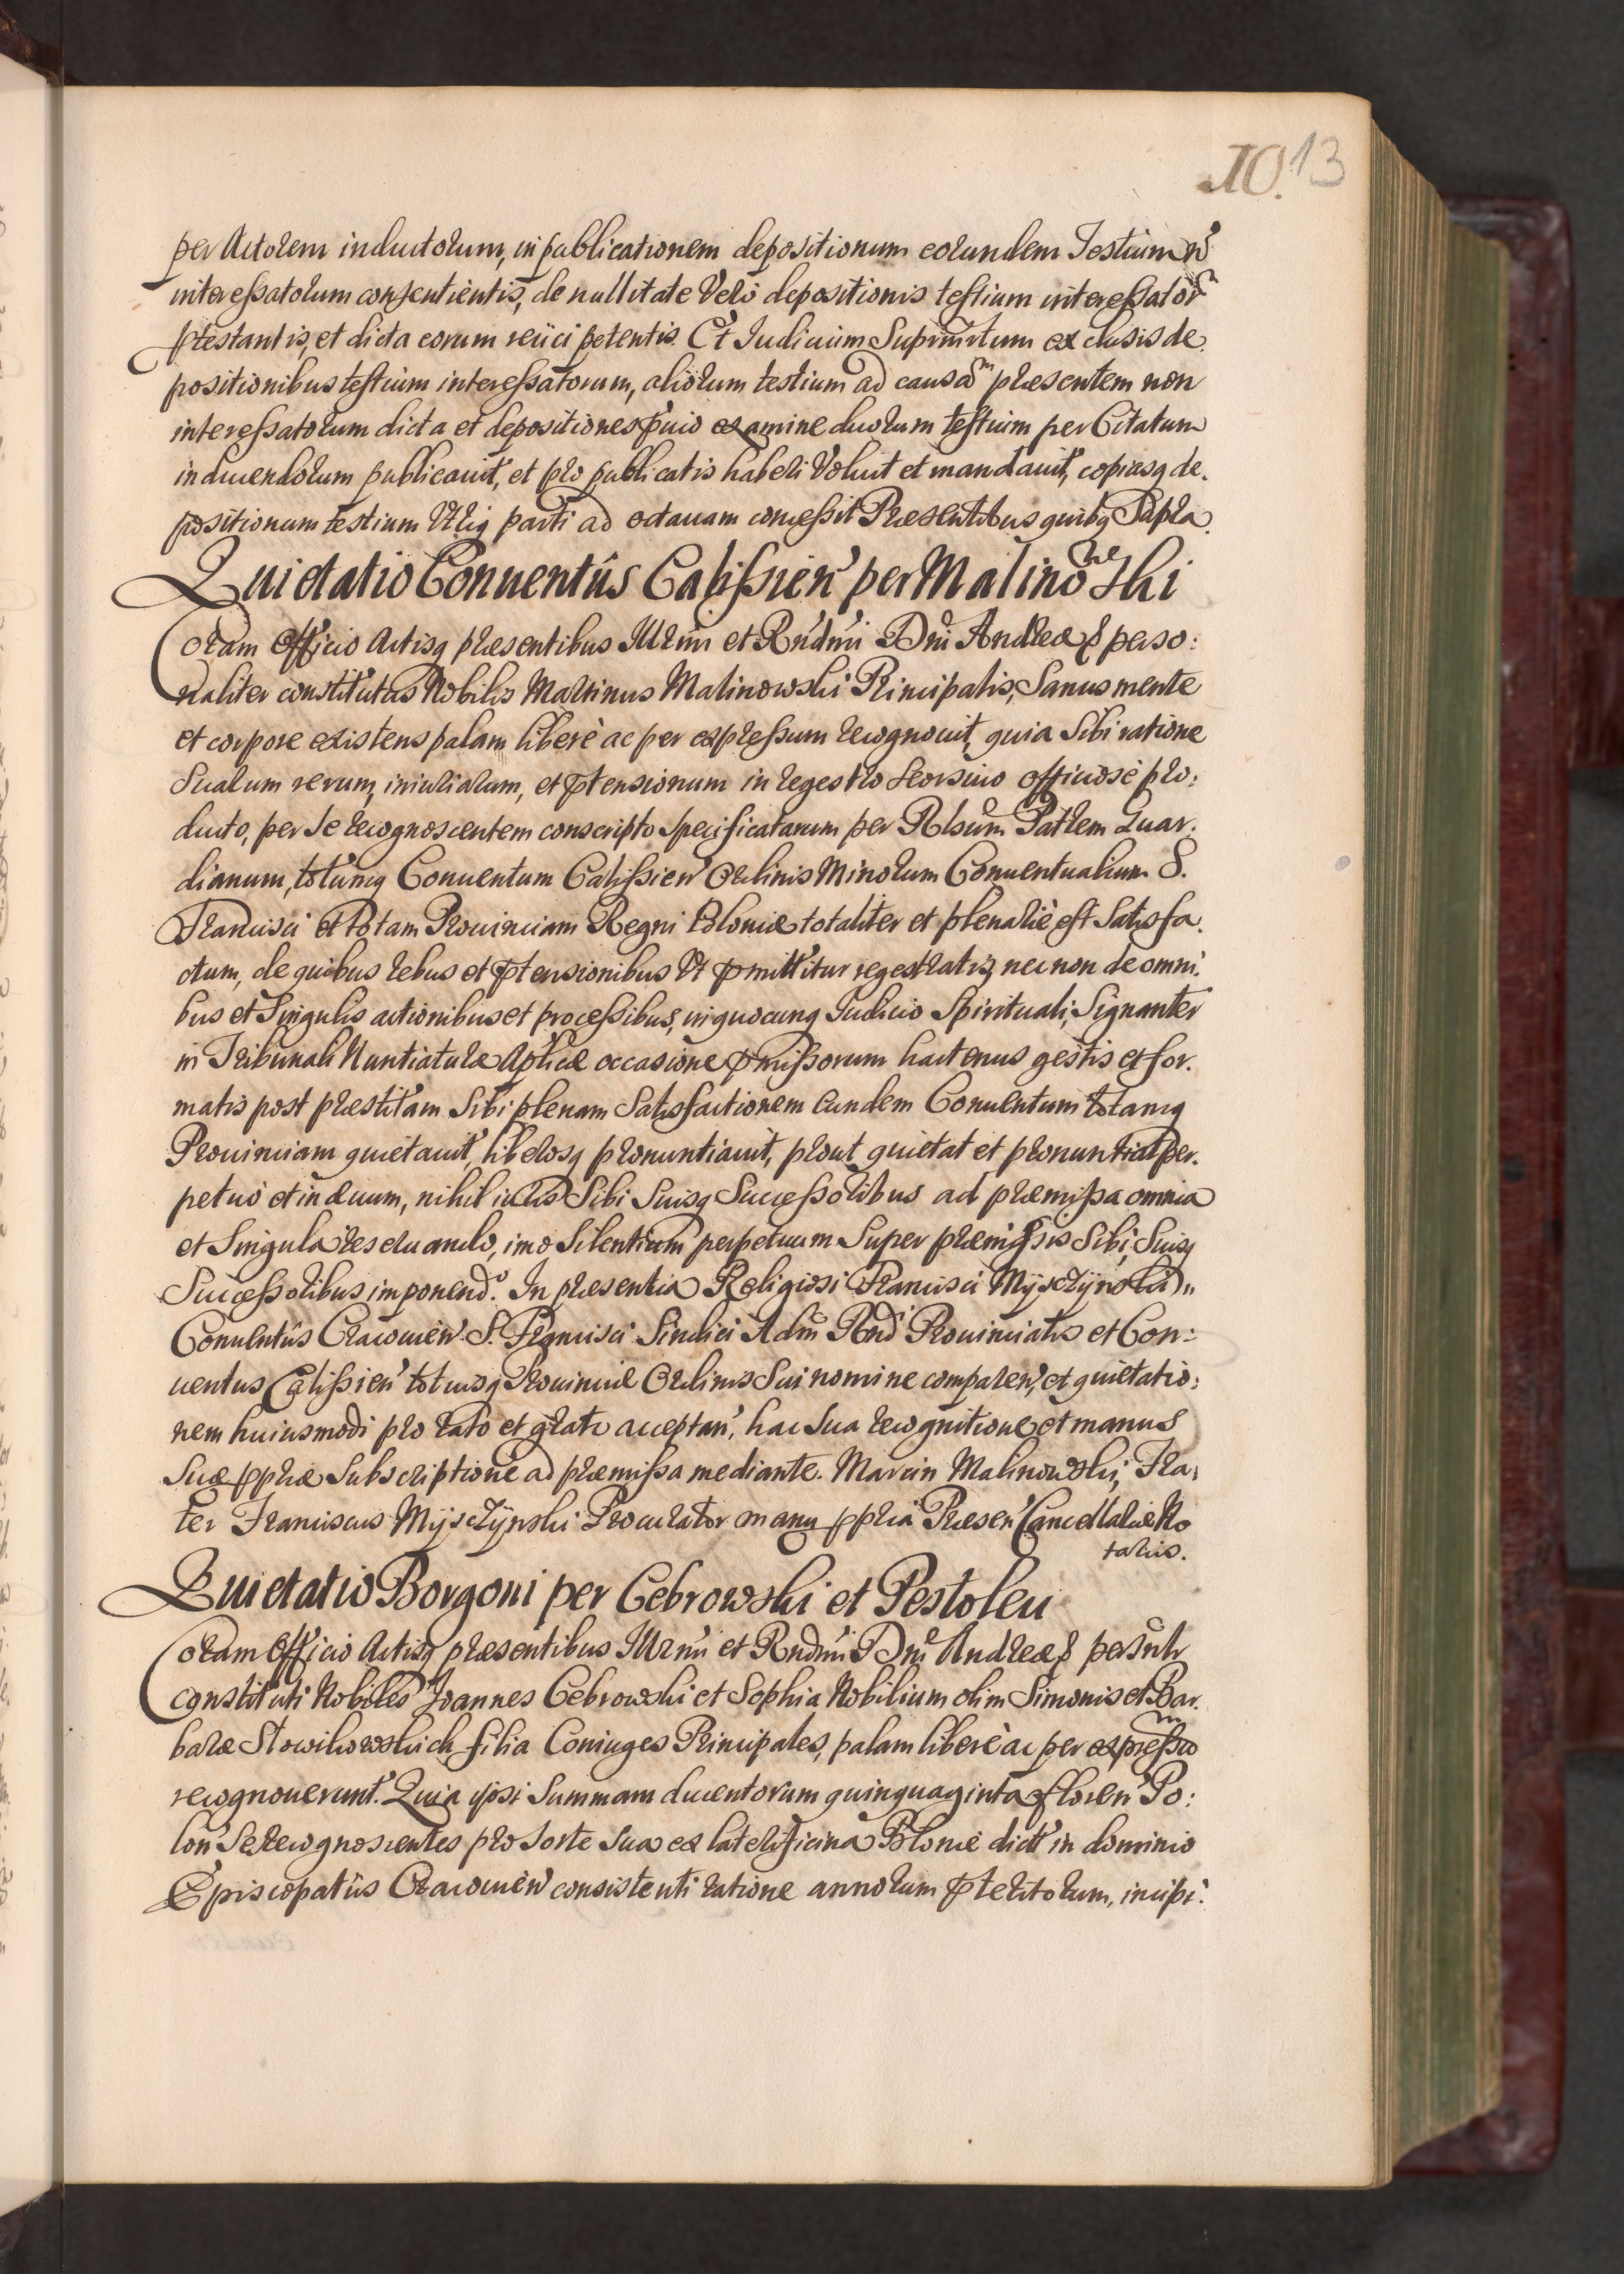 10. 13
per Actorem inductorum, in publicationem depositionum eorundem Testium n̄
interessatorum consentientis, de nullitate Vero depositionis testium interessator̄
ꝓtestantis, et dicta eorum reiici petentis. Et Iudicium Suprmtum exclusis de,
positionibus testium interessatorum, aliorum testium ad causam præsentem non
interessatorum dicta et depositiones p̄uio examine duorum testium per Citatum
inducendorum publicauit, et pro publicatis haberi Voluit et mandauit, copiasq de,
positionum testium Vtriq parti ad octauam concessit Præsentibus quibq Supra.
Quietatio Conuentûs Calissien̄ per Malinowski
Coram Officio Actisq præsentibus Illrmi et Rndmi Dni Andreæ & perso:
naliter constitutus Nobilis Martinus Malinowski Principalis, Sanus mente
et corpore existens palam liberè ac per expressum recognouit, quia Sibi ratione
Suarum rerum, iniuriarum, et p̄tensionum in regestro seorsiuo officiosè pro:
ducto, per se recognoscentem conscripto Specificatarum per Rlsum Patrem Quar,
dianum, totumq Conuentum Calissien̄ Ordinis Minorum Conuentualium S.
Francisci et totam Prouinciam Regni Poloniæ totaliter et plenariè est Satisfa,
ctum, de quibus rebus et p̄tensionibus Vt p̄mittitur regestratis, nec non de omni,
bus et Singulis actionibus et processibus, in quocunq Iudicio Spirituali, Signanter
in Tribunali Nuntiaturæ Aplicæ occasione p̄missorum hactenus gestis et for,
matis post præstitam Sibi plenam Satisfactionem eundem Conuentum totamq
Prouinciam quietauit, liberosq pronuntiauit, prout quietat et pronuntiat per,
petuò et in æuum, nihil iuris Sibi Suisq Successoribus ad præmissa omnia
et Singula reseruando, imo Silentium perpetuum Super præmissis Sibi, Suisq
Successoribus imponend̄. In præsentia Religiosi Francisci Mijsczijnski
Conuentûs Cracouien̄ S. Francisci Sindici Adm Rnd Prouincialis et Con:
uentus Calissien̄ totiusq Prouinciæ Ordinis Sui nomine comparen̄, et quietatio:
nem huiusmodi pro rato et grato acceptan̄, hac Sua recognitione et manus
Suæ ꝓpriæ Subscriptione ad præmissa mediante. Marcin Malinowski, Fra,
ter Franciscus Mijsczijnski Procurator manu ꝓpria Præsen̄ Cancellariæ No
tarius.
Quietatio Borgoni per Cebrowski et Pestolen
Coram Officio Actisq præsentibus Illrmi et Rndmi Dni Andreæ & persnlr
constituti Nobiles Joannes Cebrowski et Sophia Nobilium olim Simonis et Bar,
baræ Stowikowskich filia Coniuges Principales, palam liberè ac per expressum
recognouerunt. Quia ipsi Summam ducentorum quinquaginta floren̄ Po:
lon̄ Se recognoscentes pro sorte Sua ex laterificina Poloniè dict̄ in dominio
Episcopatûs Cracouien̄ consistenti ratione annorum p̄teritorum, incipi: